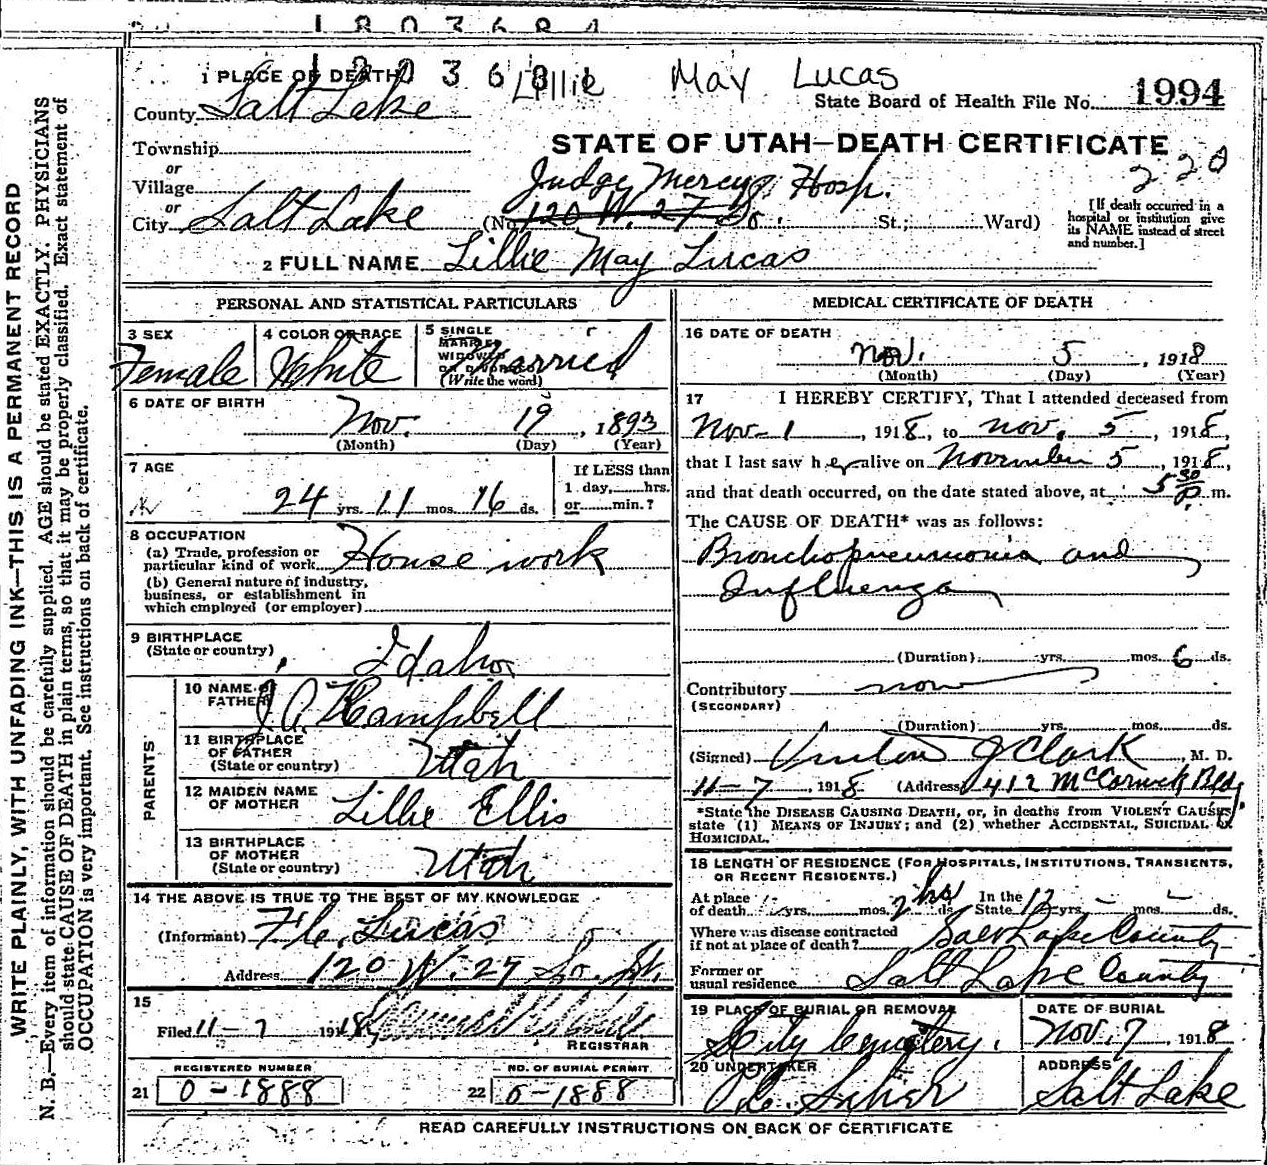 1803684
1803681
Lillie May Lucas
1 PLACE OF DEATH
State Board of Health File No. 1994
County Salt Lake
STATE OF UTAH—DEATH CERTIFICATE
Township
or
Village
Judge Mercy Hosp.
220
or
City Salt Lake (No. 120 W. 27 So. St.; Ward)
[If death occurred in a hospital or institution give its NAME instead of street and number.]
2 FULL NAME Lillie May Lucas
PERSONAL AND STATISTICAL PARTICULARS
3 SEX
Female
4 COLOR OR RACE
White
5 SINGLE
MARRIED
WIDOWED
OR DIVORCED
(Write the word)
Married
6 DATE OF BIRTH
Nov. 19, 1893
(Month) (Day) (Year)
7 AGE
24 yrs. 11 mos. 16 ds.
If LESS than
1 day, hrs.
or min.?
8 OCCUPATION
(a) Trade, profession or
particular kind of work House work
(b) General nature of industry,
business, or establishment in
which employed (or employer)
9 BIRTHPLACE
(State or country) Idaho
PARENTS
10 NAME OF
FATHER J. A. Campbell
11 BIRTHPLACE
OF FATHER
(State or country) Utah
12 MAIDEN NAME
OF MOTHER Lillie Ellis
13 BIRTHPLACE
OF MOTHER
(State or country) Utah
14 THE ABOVE IS TRUE TO THE BEST OF MY KNOWLEDGE
(Informant) Lucas
Address 120 W. 27 So. St.
15
Filed 11-7 1918
REGISTRAR
REGISTERED NUMBER
21 0-1888
NO. OF BURIAL PERMIT
22 0-1888
MEDICAL CERTIFICATE OF DEATH
16 DATE OF DEATH
Nov. 5, 1918
(Month) (Day) (Year)
17 I HEREBY CERTIFY, That I attended deceased from
Nov-1, 1918, to Nov. 5, 1918,
that I last saw her alive on November 5, 1918,
and that death occurred, on the date stated above, at 5 30 P. m.
The CAUSE OF DEATH* was as follows:
Bronchopneumonia and
Influenza
(Duration) yrs. mos. 6 ds.
Contributory
(SECONDARY)
(Duration) yrs. mos. ds.
(Signed) Vinton J Clark M. D.
11-7, 1918 (Address) 412 McCornick Bldg.
*State the DISEASE CAUSING DEATH, or, in deaths from VIOLENT CAUSES
state (1) MEANS OF INJURY; and (2) whether ACCIDENTAL, SUICIDAL or
HOMICIDAL.
18 LENGTH OF RESIDENCE (FOR HOSPITALS, INSTITUTIONS, TRANSIENTS,
OR RECENT RESIDENTS.)
At place
of death yrs. mos. 2 hrs ds. In the State 12 yrs. - mos. - ds.
Where was disease contracted
if not at place of death? Salt Lake County
Former or
usual residence Salt Lake County
19 PLACE OF BURIAL OR REMOVAL
City Cemetery.
DATE OF BURIAL
Nov. 7, 1918
20 UNDERTAKER
ADDRESS
Salt Lake
READ CAREFULLY INSTRUCTIONS ON BACK OF CERTIFICATE
WRITE PLAINLY, WITH UNFADING INK—THIS IS A PERMANENT RECORD
N. B.—Every item of information should be carefully supplied. AGE should be stated EXACTLY. PHYSICIANS
should state CAUSE OF DEATH in plain terms, so that it may be properly classified. Exact statement of
OCCUPATION is very important. See instructions on back of certificate.